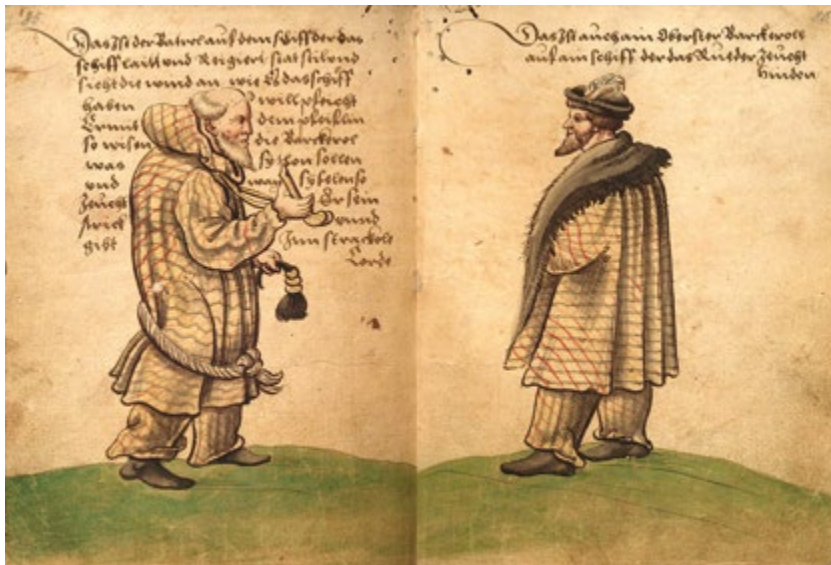 Das Ist der Patrol auf dem schiff der das
schiff laitt und Reigiert stat stil und
sicht die wind an wie Es das schiff
haben will pfeicht
Er mit dem pfeiflin
so wisen die Barckerol
was sy thon sollen
und wan sy
Zeucht Er sein
strick
gibt
Das Ist auch ain Oberster Barckerols
auf ain schiff der das Rueder Zeucht
hinden